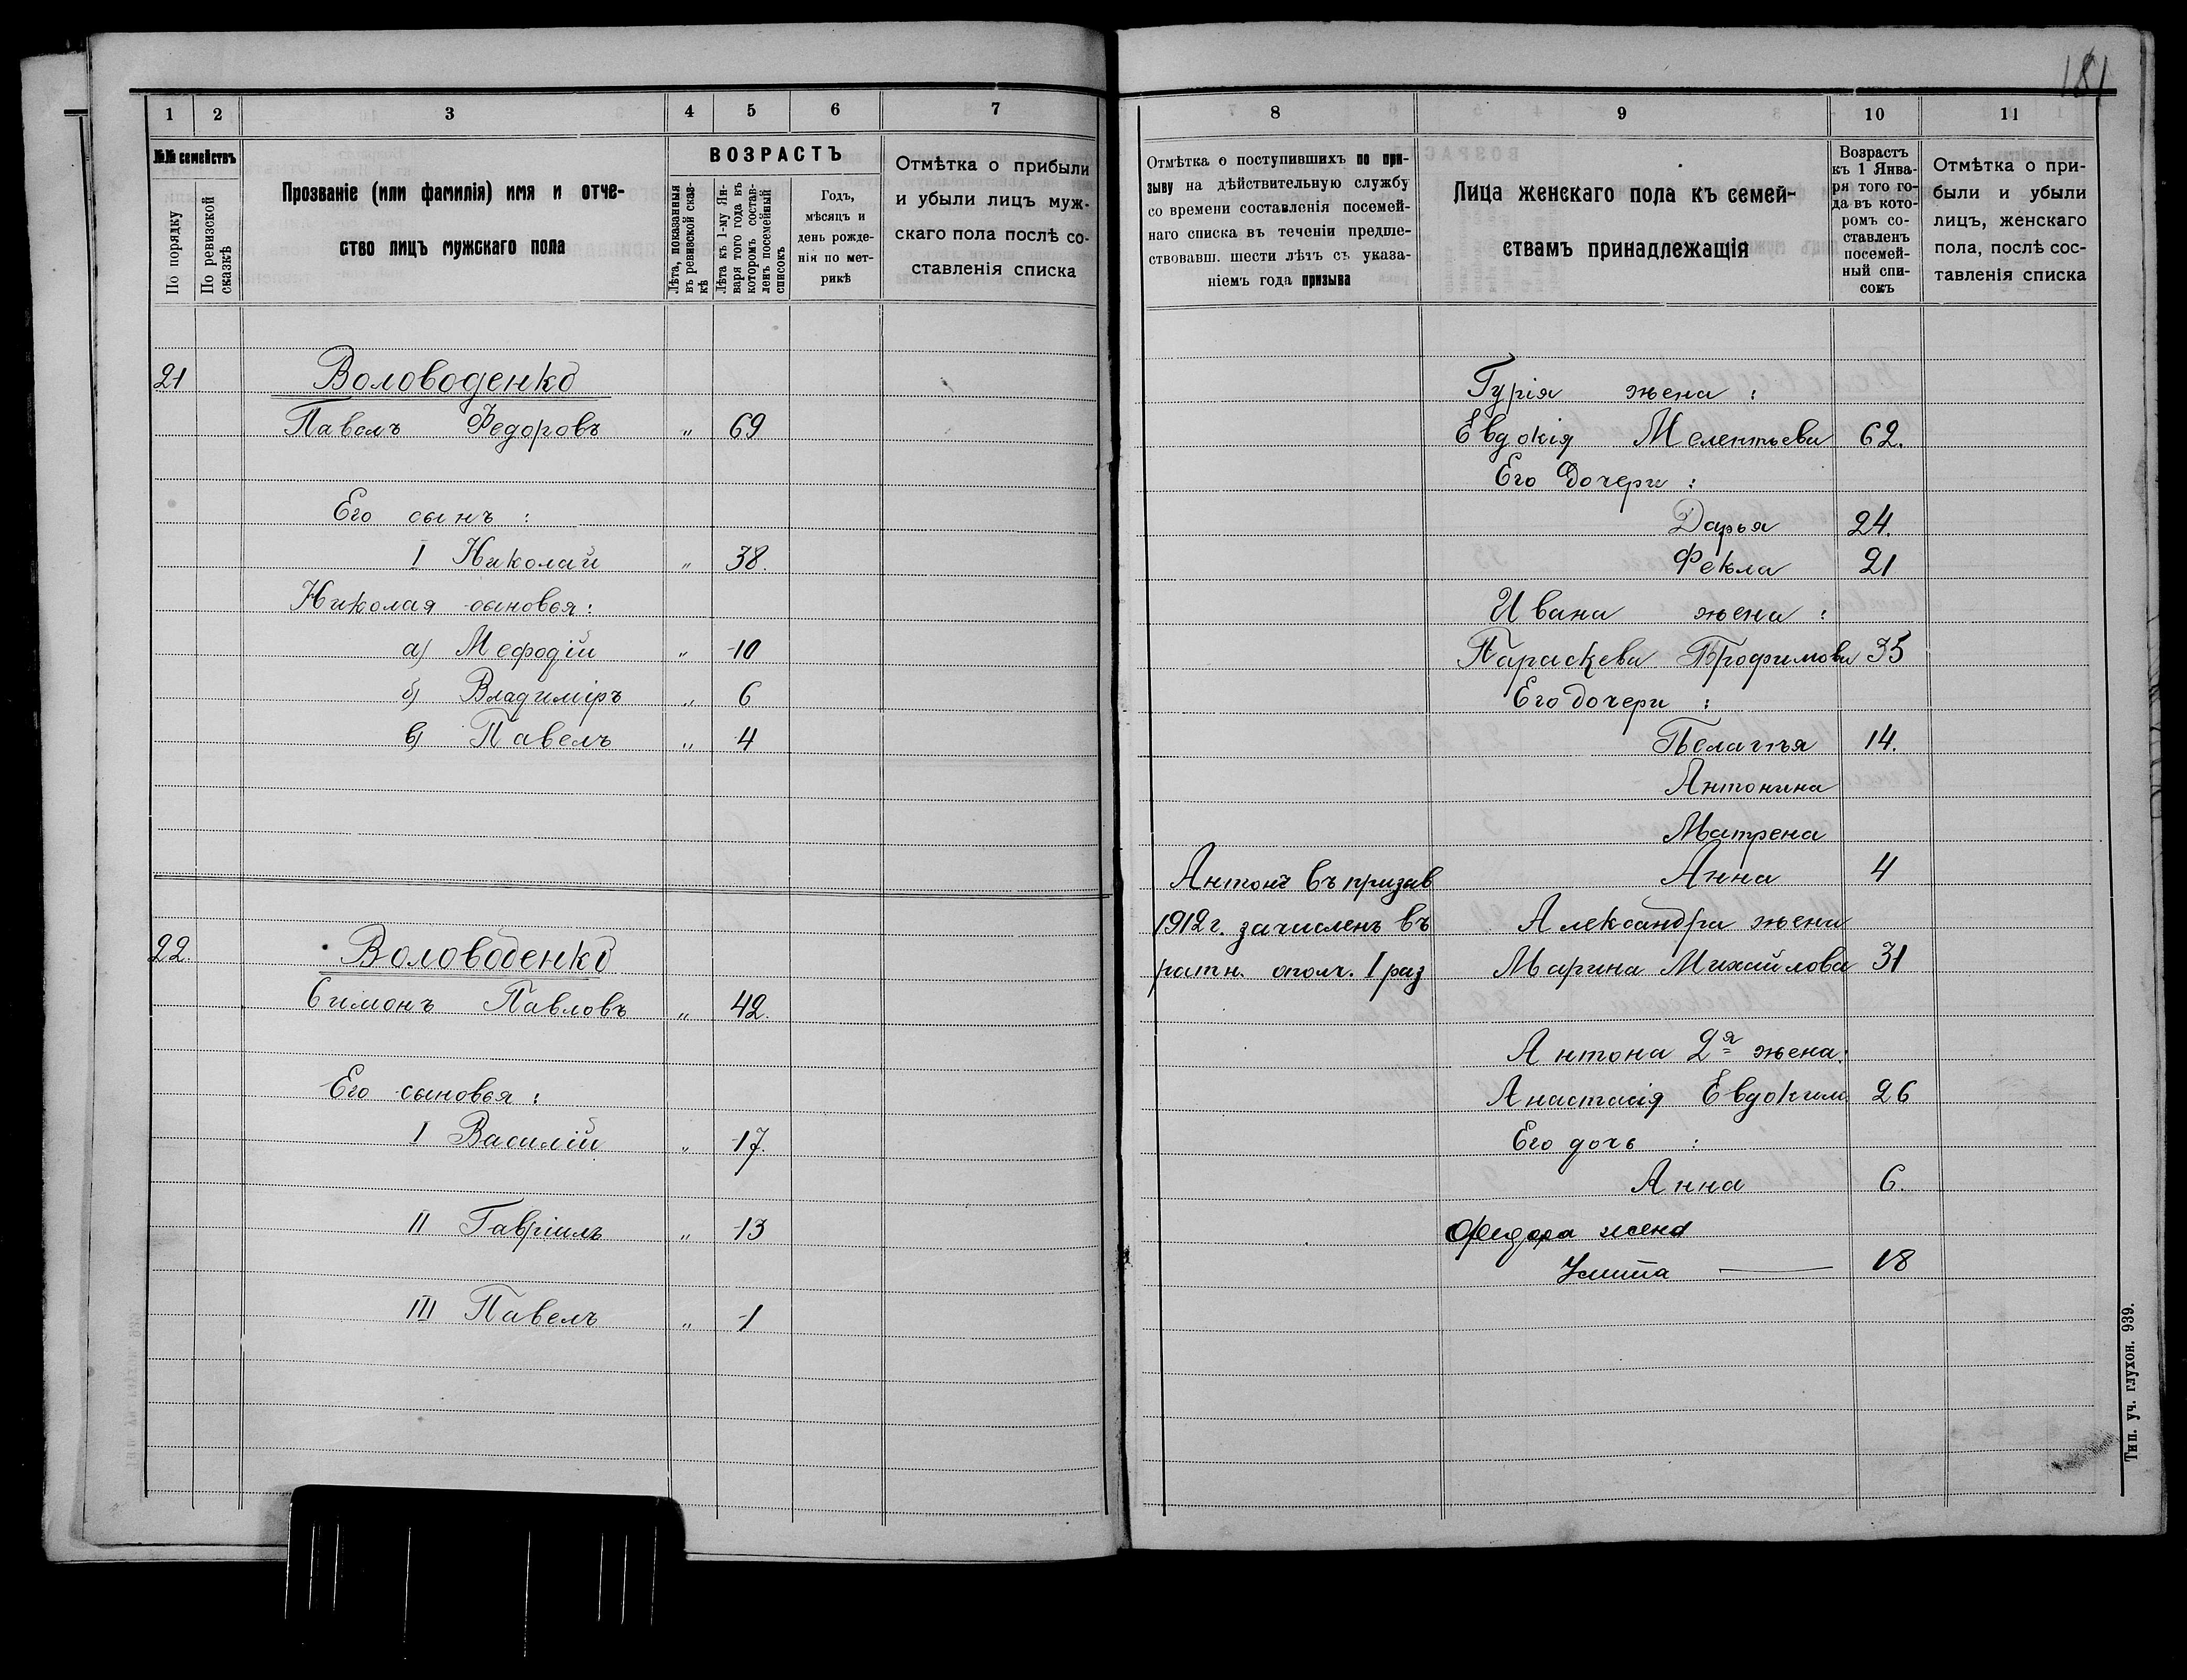 181
1 2 3 4 5 6 7
№№ семействъ
По порядку
По ревизской сказкѣ
Прозваніе (или фамилія) имя и отче-
ство лицъ мужскаго пола
ВОЗРАСТЪ
Лѣта, показанныя
въ ревизской сказ-
кѣ
Лѣта къ 1-му Ян-
варя того года въ
которомъ состав-
ленъ посемейный
списокъ
Годъ,
мѣсяцъ и
день рожде-
нія по мет-
рикѣ
Отмѣтка о прибыли
и убыли лицъ муж-
скаго пола послѣ со-
ставленія списка
21 Воловоденко
Павелъ Федоровъ „ 69
Его сынъ :
I Николай „ 38.
Николая сыновья :
а) Мефодій „ 10
б) Владиміръ „ 6
в) Павелъ „ 4
22. Воловоденко
Симонъ Павловъ „ 42.
Его сыновья :
I Василій „ 17.
II Гавріилъ „ 13
III Павелъ „ 1
8 9 10 11
Отмѣтка о поступившихъ по при-
зыву на дѣйствительную службу
со времени составленія посемей-
наго списка въ теченіи предше-
ствовавш. шести лѣтъ съ указа-
ніемъ года призыва
Лица женскаго пола къ семей-
ствамъ принадлежащія
Возрастъ
къ 1 Янва-
ря того го-
да въ кото-
ромъ со-
ставленъ
посемей-
ный спи-
сокъ
Отмѣтка о при-
были и убыли
лицъ, женскаго
пола, послѣ сос-
тавленія списка
Гурія жена :
Евдокія Мелентьева 62.
Его дочери :
Дарья 24.
Фекла 21
Ивана жена :
Параскева Трофимова 35
Его дочери :
Пелагѣя 14.
Антонина
Матрена
Анна 4
Антонъ въ призыв
1912 г. зачисленъ въ
ратн. ополч. I раз
Александра жена
Марина Михайлова 31
Антона 2я жена :
Анастасія Евдоким 26
Его дочь :
Анна 6.
Федора жена
Улита — 18
Тип. уч. глухон. 939.